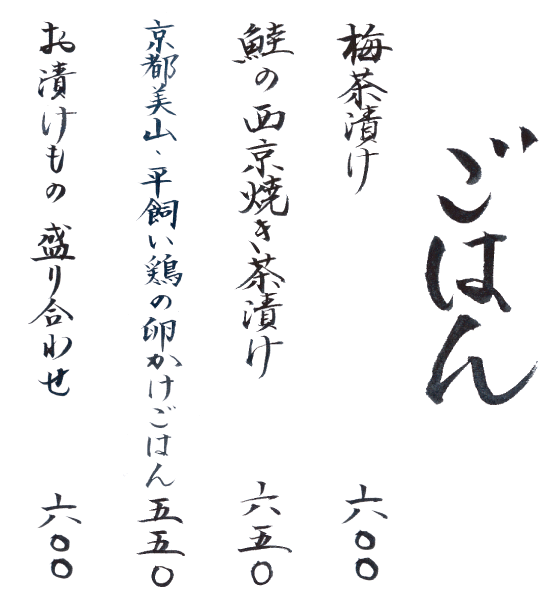 ごはん
梅茶漬け 六〇〇
鮭の西京焼き茶漬け 六五〇
京都美山、平飼い鶏の卵かけごはん 五五〇
お漬けもの 盛り合わせ 六〇〇